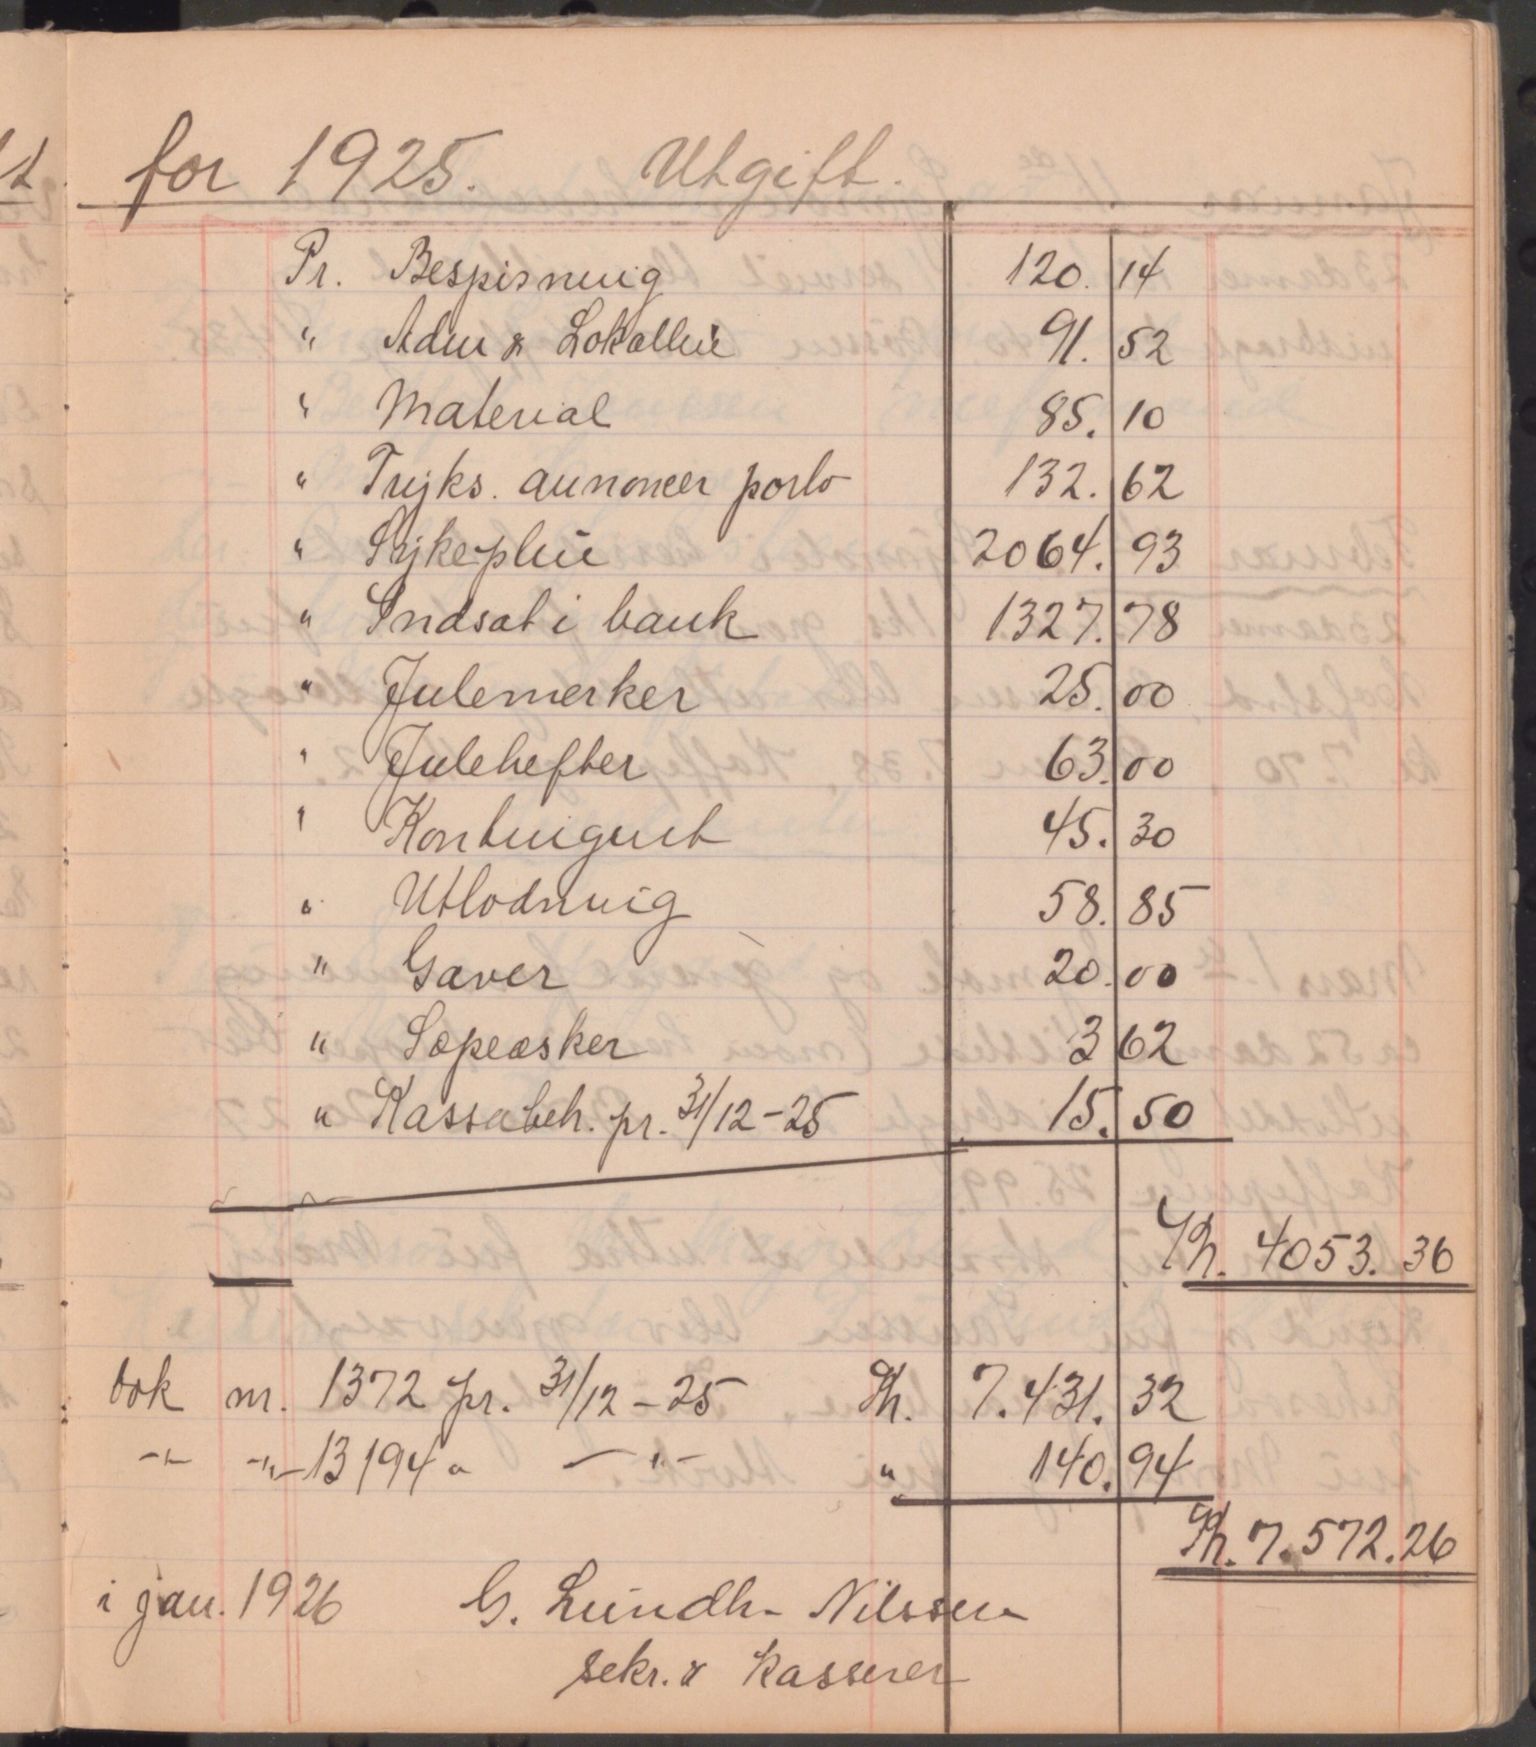 for 1925. Utgift.
Pr. Bespisning 120. 14
" Adm & Lokalleie 91. 52
" Material 85. 10
" Trijks. annoncer porto 132. 62
" Sykepleie 2064. 93
" Indsat i bank 1327. 78
" Julemerker 25. 00
" Julehefter 63. 00
" Kontingent 45. 30
" Utlodning 58. 85
" Gaver 20. 00
" Sæpeæsker 3 62
" Kassabeh. pr. 31/12-25 15. 50
Kr. 4053. 36
bok nr. 1372 pr. 31/12-25 Kr. 7.431. 32
-"- -"- 13194 " -"- " 140. 94
Kr. 7.572.26
i jan. 1926 G. Lundh-Nilssen
sekr. & kasserer